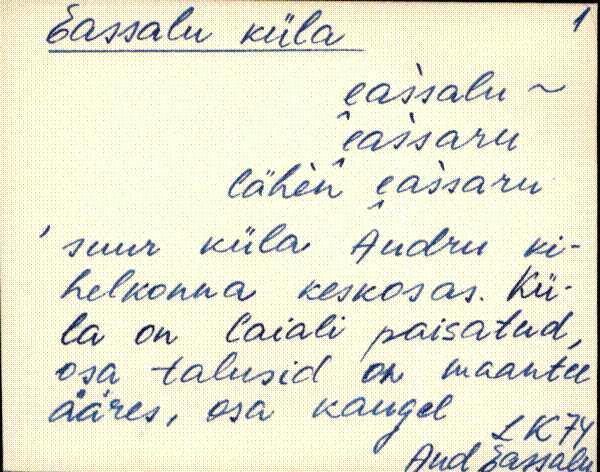 Eassalu küla 1
eas̀salu ~
e̯as̀saru
lähèn e̯as̀saru
' suur küla Audru ki-
helkonna keskosas. Kü-
la on laiali paisatud,
osa talusid on maantee
ääres, osa kaugel
LK74
Aud Eassalu